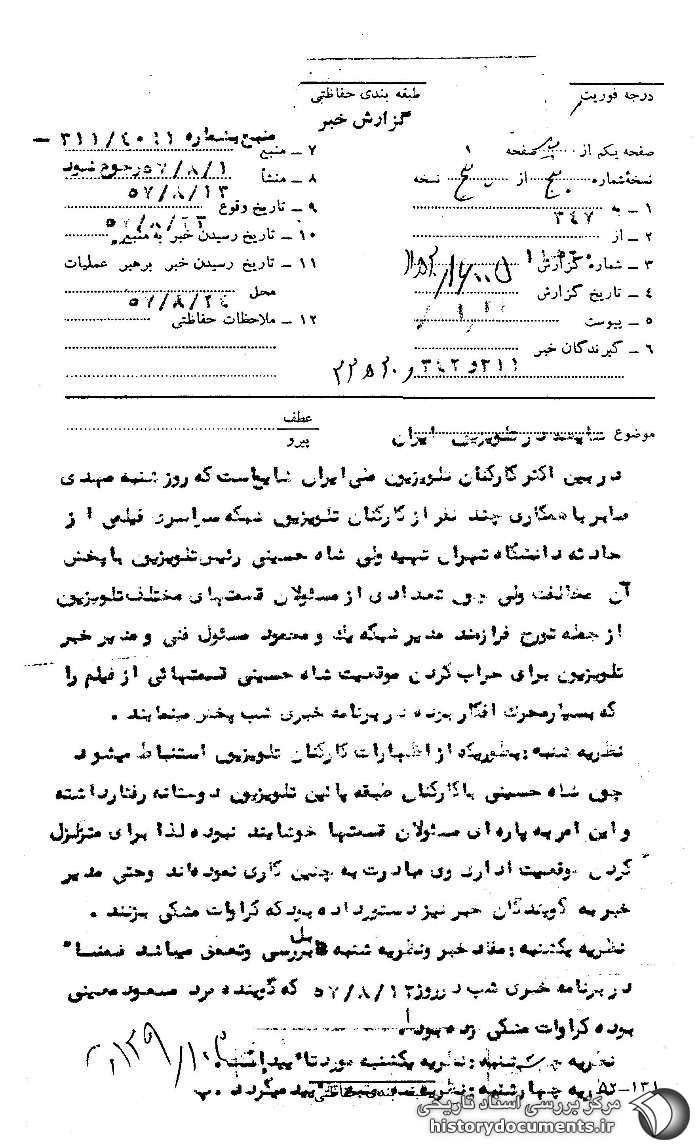 درجه فوریت
طبقه بندی حفاظتی
گزارش خبر
صفحه یکم از صفحه
نسخهٔ شماره پنج از پنج نسخه
۱ ـ به ۳۴۷
۲ ـ از
۳ ـ شماره گزارش
۴ ـ تاریخ گزارش
۵ ـ پیوست
۶ ـ گیرندگان خبر ۳۱۱ و ۳۴۲ و
۷ ـ منبع منبع بشماره
۸ ـ منشأ ۵۷/۸/۱ رجوع شود
۹ ـ تاریخ وقوع ۵۷/۸/۱۳
۱۰ ـ تاریخ رسیدن خبر به منبع ۵۷/۸/۲۳
۱۱ ـ تاریخ رسیدن خبر برهبر عملیات
محل ۵۷/۸/۲۴
۱۲ ـ ملاحظات حفاظتی
موضوع شایعه در تلویزیون ایران
عطف
پیرو
در بین اکثر کارکنان تلویزیون ملی ایران شایع است که روز شنبه مهدی
صابر با همکاری چند نفر از کارکنان تلویزیون شبکه سراسری فیلمی از
حادثه دانشگاه تهران تهیه ولی شاه حسینی رئیس تلویزیون با پخش
آن مخالفت ولی چون تعدادی از مسئولان قسمتهای مختلف تلویزیون
از جمله تورج فرازمند مدیر شبکه یک و محمود مسئول فنی و مدیر خبر
تلویزیون برای خراب کردن موقعیت شاه حسینی قسمتهائی از فیلم را
که بسیار محرک افکار بوده در برنامه خبری شب پخش مینمایند .
نظریه شنبه : بطوریکه از اظهارات کارکنان تلویزیون استنباط میشود
چون شاه حسینی با کارکنان طبقه پائین تلویزیون دوستانه رفتار داشته
و این امر به پاره ای مسئولان قسمتها خوشایند نبوده لذا برای متزلزل
کردن موقعیت اداری وی مبادرت به چنین کاری نموده اند و حتی مدیر
خبر به گویندگان خبر نیز دستور داده بود که کراوات مشکی بزنند .
نظریه یکشنبه : مفاد خبر و نظریه شنبه قابل بررسی و تعمق میباشد ضمنا"
در برنامه خبری شب در روز ۵۷/۸/۱۳ که گوینده مرد مسعود معینی
بوده کراوات مشکی زده بود .
نظریه سه شنبه : نظریه یکشنبه مورد تائید است .
نظریه چهارشنبه : نظریه تائید میگردد .
طبقه بندی حفاظتی
۵۲-۱۳۱
مرکز بررسی اسناد تاریخی
historydocuments.ir